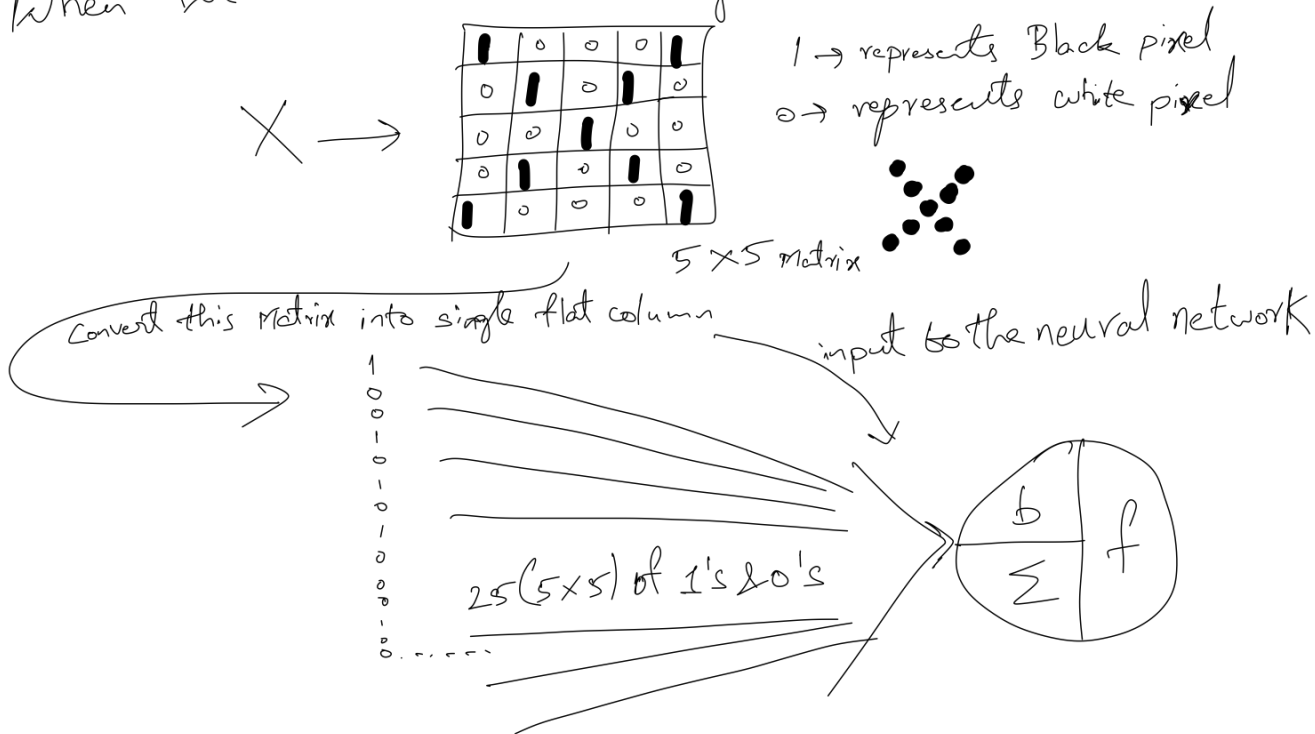 When
1 0 0 0 1
0 1 0 1 0
0 0 1 0 0
0 1 0 1 0
1 0 0 0 1
1 → represents Black pixel
0 → represents white pixel
X →
5 x 5 Matrix
Convert this Matrix into single flat column
input to the neural network
1
0
0
1
0
1
0
1
0
0
0
25 (5x5) of 1's & 0's
b
Σ
f